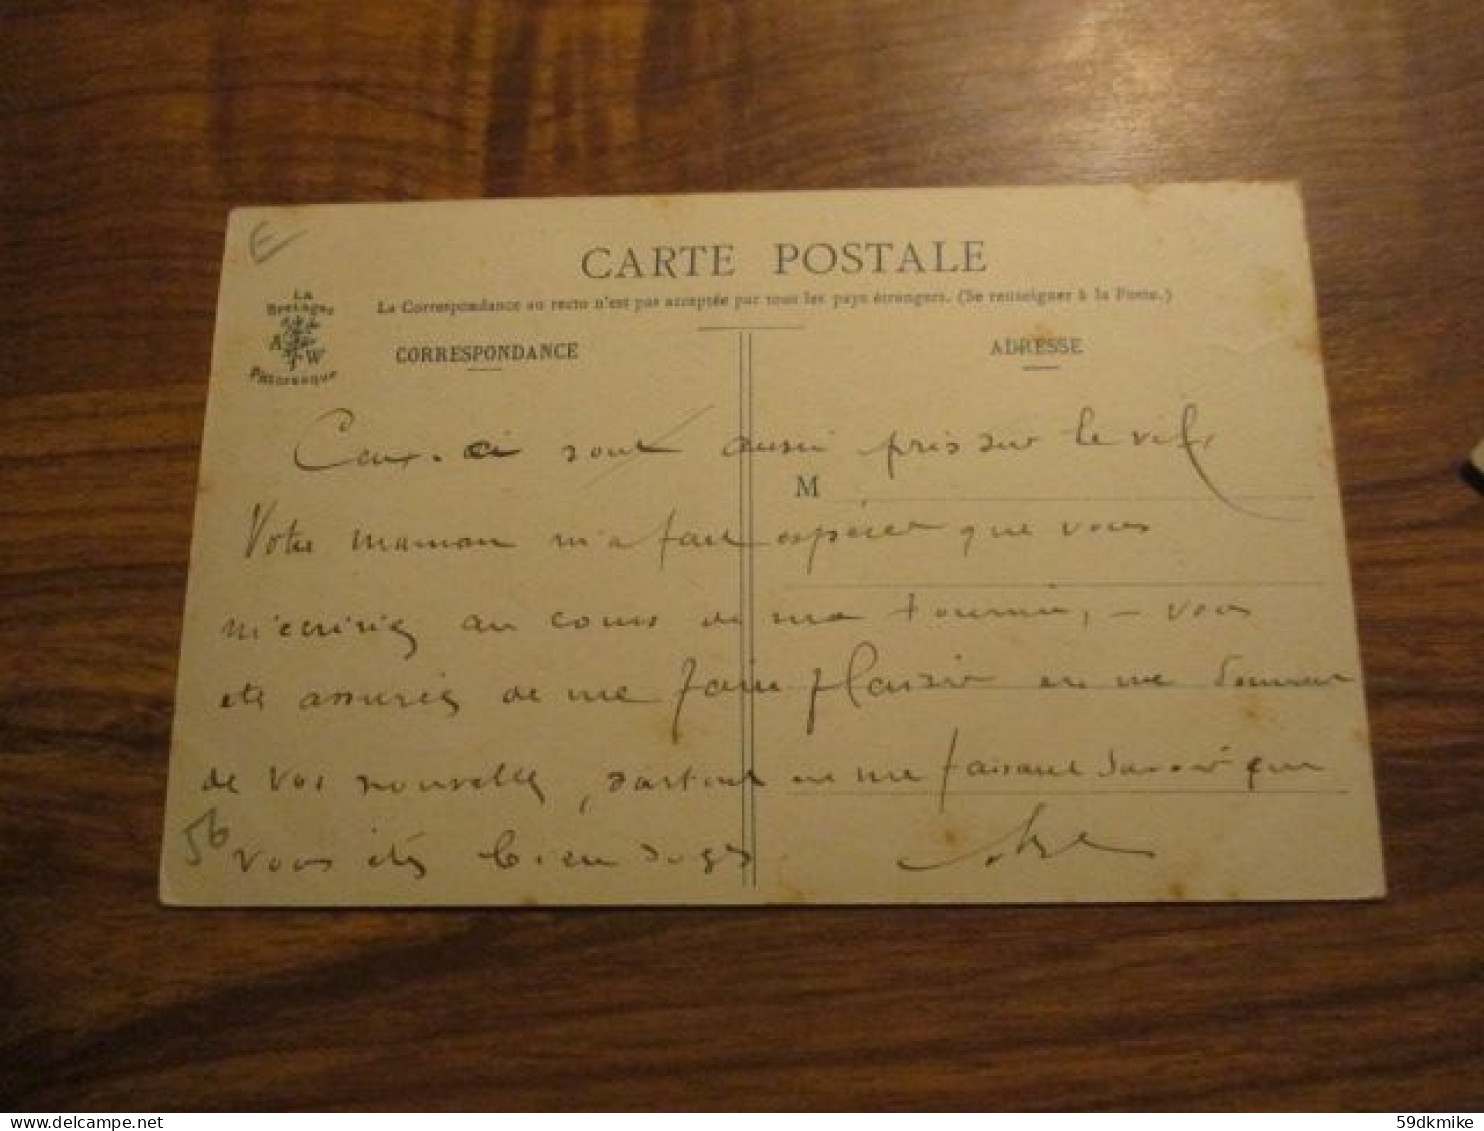 E
CARTE POSTALE
La Correspondance au recto n'est pas acceptée par tous les pays étrangers. (Se renseigner à la Poste.)
La
Bretagne
A W
Pittoresque
CORRESPONDANCE
ADRESSE
Ceux-ci sont aussi pris sur le vif,
M
Votre maman m'a fait espérer que vous
m'écririez au cours de ma tournée, - vous
êtes assurés de me faire plaisir en me donnant
de vos nouvelles, surtout en me faisant savoir que
vous êtes bien sages
56
59dkmike